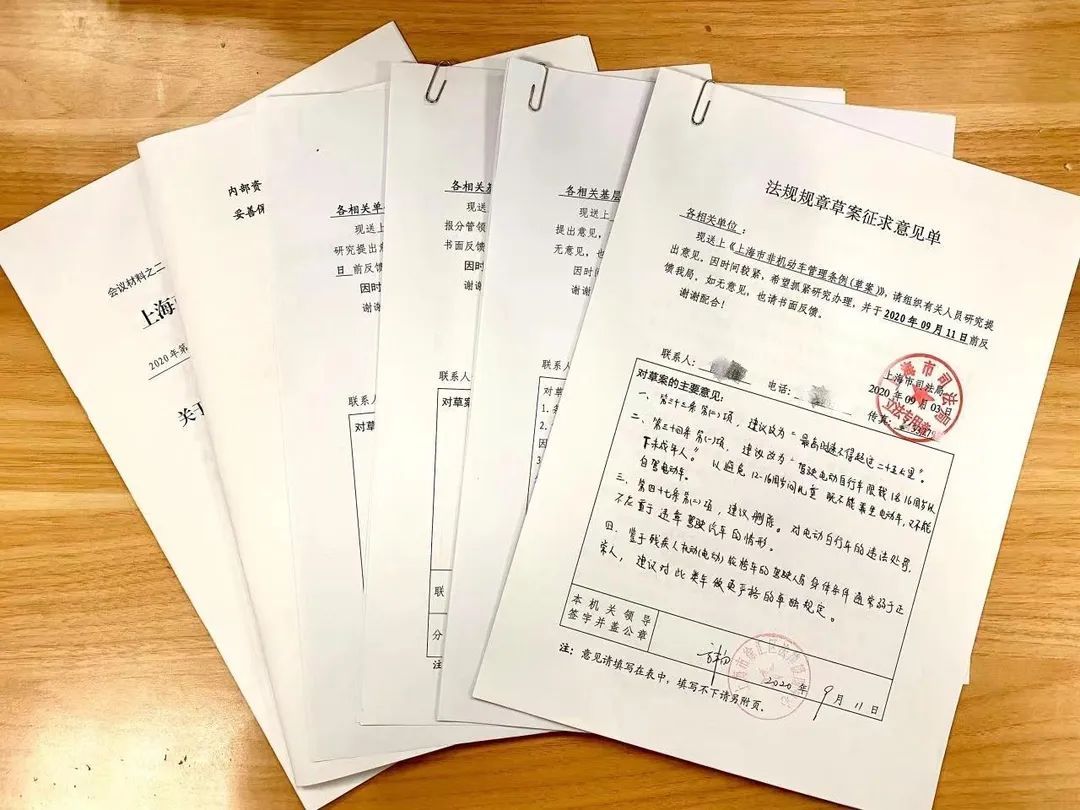 会议材料之二
上海
2020年第
关于
内部资
妥善保
各相关单
现送上
研究提出意
日前反馈
因时
谢谢
联系人
对草案
联
分
各相关基
现送
报分管领
书面反馈
因时
谢谢
联系人
对草案
各相关基层
现送上
提出意见,
无意见,也
因时
谢谢
联系
对
1.
2.
因
3
法规规章草案征求意见单
各相关单位:
现送上《上海市非机动车管理条例(草案)》,请组织有关人员研究提
出意见,因时间较紧,希望抓紧研究办理,并于2020年09月11日前反
馈我局,如无意见,也请书面反馈。
谢谢配合!
上海市司法局
2020年09月03日
联系人:
电话:
传真:
对草案的主要意见:
一、第三十三条第(二)项,建议改为“最高时速不得超过二十五公里”。
二、第三十四条第(一)项,建议改为“驾驶电动自行车限载1名16周岁以
下未成年人。”以避免12-16周岁间儿童既不能乘坐电动车,又不能
自驾电动车。
三、第四十七条第(二)项,建议删除。对电动自行车的违法处罚,
不应重于违章驾驶汽车的情形。
四、鉴于残疾人机动(电动)轮椅车的驾驶人员身体条件通常弱于正
常人,建议对此类车做更严格的单独规定。
本机关领导
签字并盖公章
2020年9月11日
注:意见请填写在表中,填写不下请另附页。